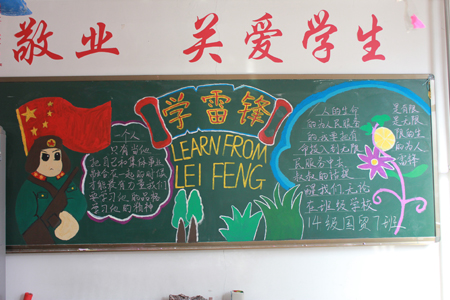 敬业 关爱学生
学雷锋
LEARN FROM
LEI FENG
一个人
只有当他
把自己和集体事业
融合在一起的时候
才能最有力量我们
要学习他的品格
学习他的精神
人的生命 是有限
的为人民服务 是无限
的我要把有 限的生
命投入到无限 的为人
民服务中去 雷锋
叔叔的话激
醒我们无论
在班级学校
14级国贸7班